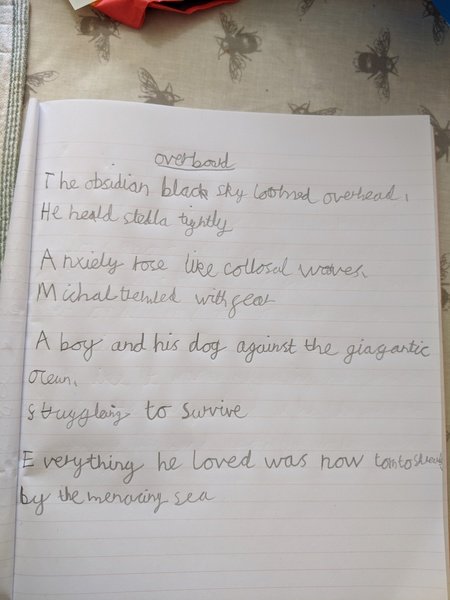 overboard
The obsidian black sky loomed overhead.
He heald stella tightly
Anxiely rose like collosal waves.
Michal trembled with fear
A boy and his dog against the giagantic
ocean.
struggleing to survive
Everything he loved was now torn to shreds
by the menacing sea